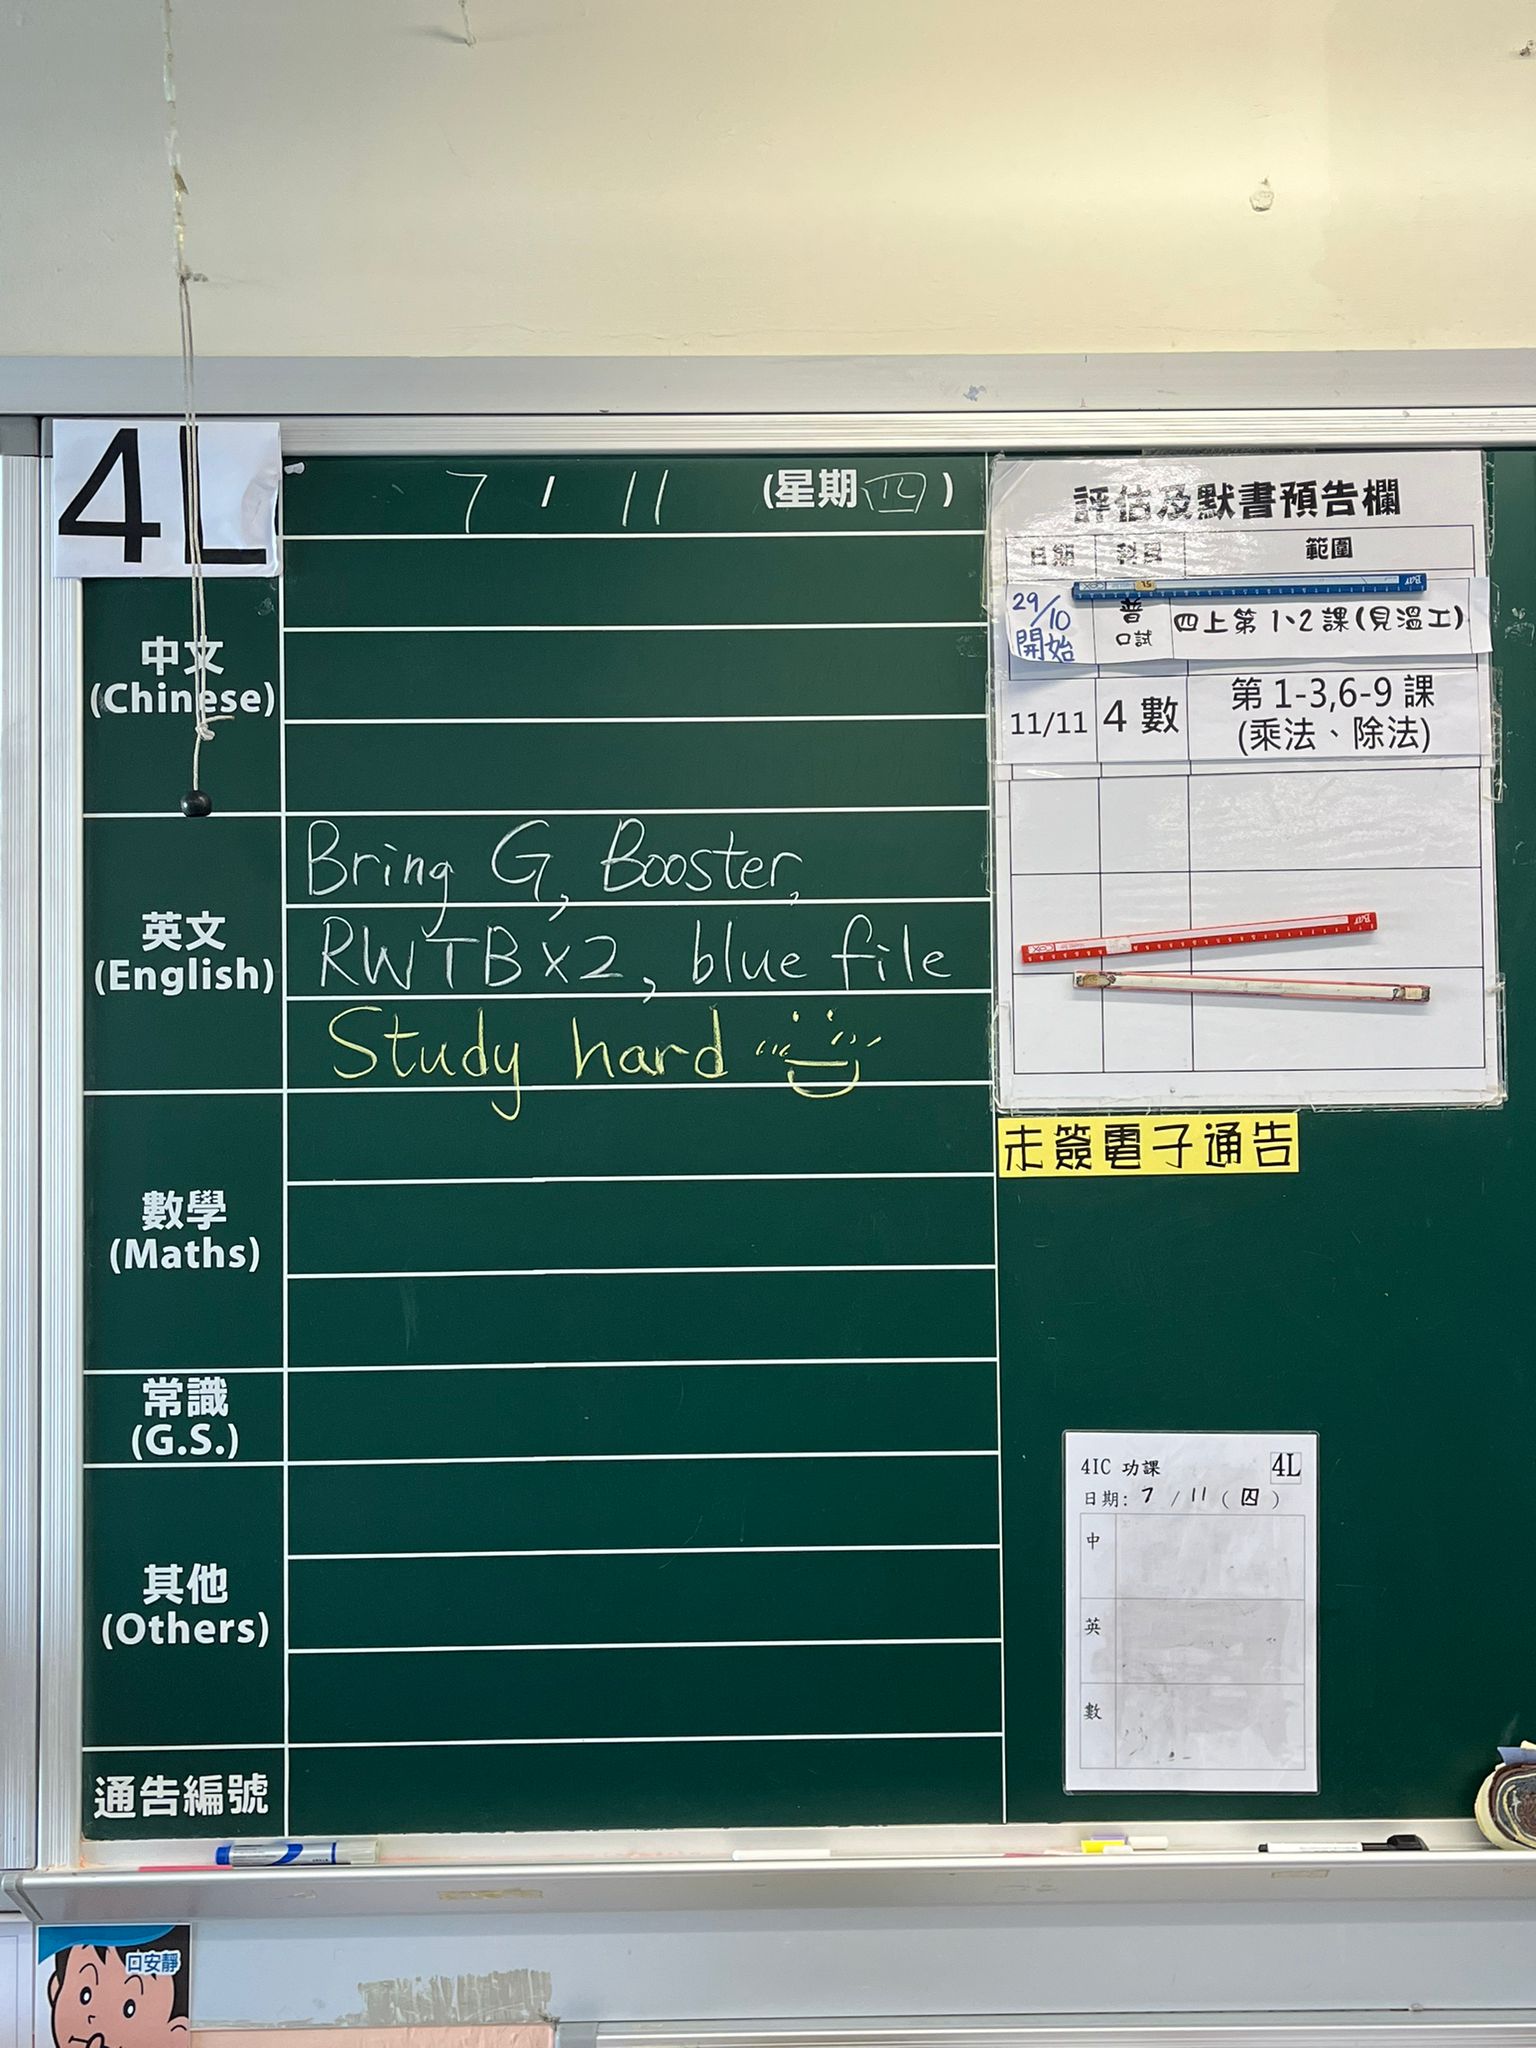 4L
7 / 11 (星期四)
中文
(Chinese)
英文
(English)
Bring G, Booster,
RWTB x2, blue file
Study hard
數學
(Maths)
常識
(G.S.)
其他
(Others)
通告編號
評估及默書預告欄
日期 科目 範圍
29/10 開始 普 口試 四上第1、2課(見溫工)
11/11 4數 第1-3,6-9課
(乘法、除法)
未簽電子通告
4IC 功課 4L
日期: 7 / 11 (四)
中
英
數
口安靜